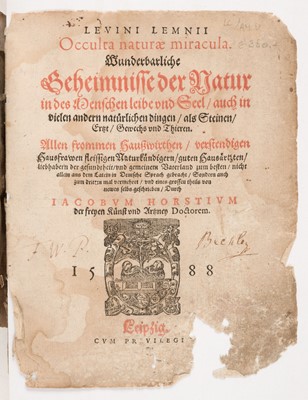 LEVINI LEMNII
Occulta naturæ miracula.
Wunderbarliche
Geheimnisse der Natur
in des Menschen leibe vnd Seel / auch in
vielen andern natürlichen dingen / als Steinen /
Ertzt / Gewechs vnd Thieren.
Allen frommen Hauswirthen / verstendigen
Hausfrawen fleissigen Naturkündigern / guten Hausärtzten /
liebhabern der gesundheit / vnd gemeinem Vaterland zum besten / nicht
allein aus dem Latein in Deutsche Sprach gebracht / Sondern auch
zum dritten mal vermehret / vnd eines grossen theils von
newen selbs geschrieben / Durch
IACOBVM HORSTIVM
der freyen Künst vnd Artzney Doctorem.
15 88
Leipzig.
CVM PRIVILEGI